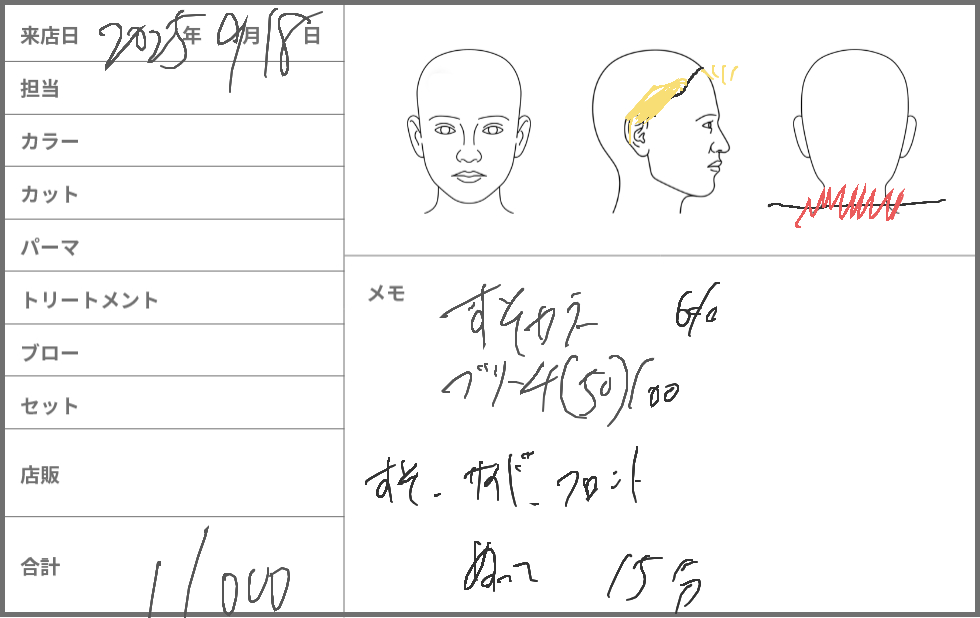 来店日 2025年 9月18日
担当
カラー
カット
パーマ
トリートメント
ブロー
セット
店販
合計 11000
メモ
すそカラー 6%
ブリーチ(50)100
すそ - サイド - フロント
ぬって 15分